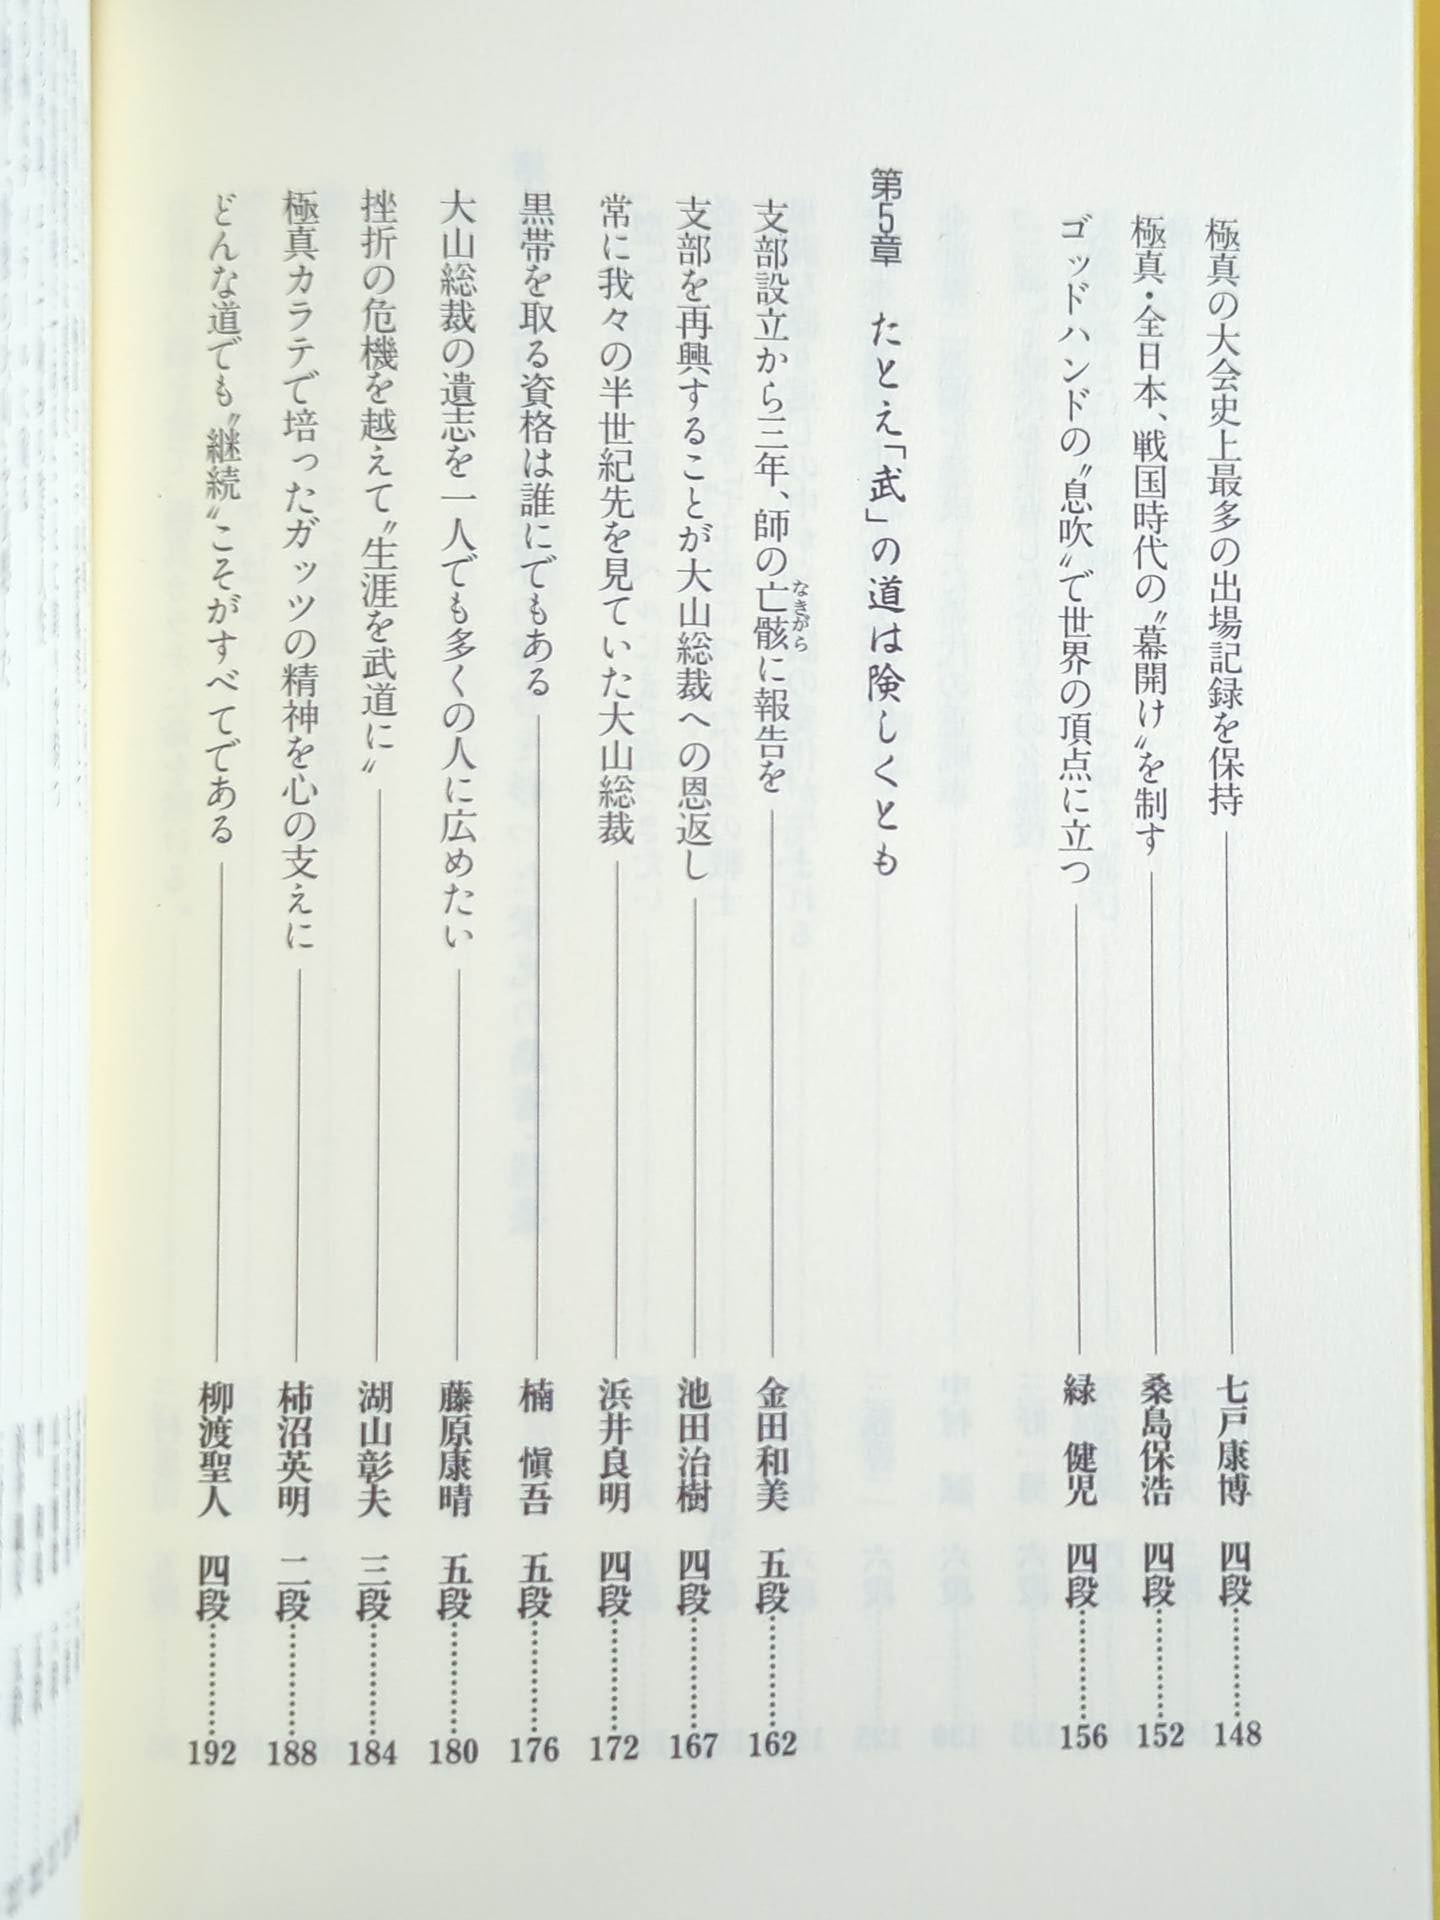 極真の大会史上最多の出場記録を保持――七戸康博 四段………148
極真・全日本、戦国時代の〝幕開け〟を制す――桑島保浩 四段………152
ゴッドハンドの〝息吹〟で世界の頂点に立つ――緑 健児 四段………156
第5章 たとえ「武」の道は険しくとも
支部設立から三年、師の亡骸に報告を――金田和美 五段………162
なきがら
支部を再興することが大山総裁への恩返し――池田治樹 四段………167
常に我々の半世紀先を見ていた大山総裁――浜井良明 四段………172
黒帯を取る資格は誰にでもある――楠 愼吾 五段………176
大山総裁の遺志を一人でも多くの人に広めたい――藤原康晴 五段………180
挫折の危機を越えて〝生涯を武道に〟――湖山彰夫 三段………184
極真カラテで培ったガッツの精神を心の支えに――柿沼英明 二段………188
どんな道でも〝継続〟こそがすべてである――柳渡聖人 四段………192